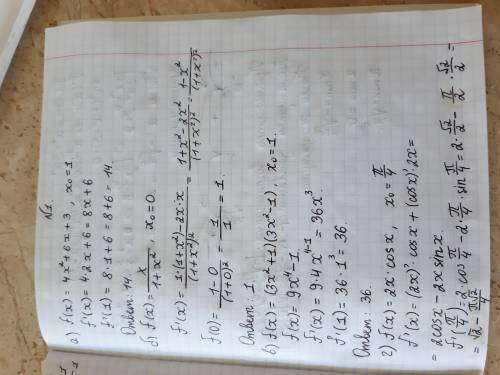 N1.
а) f(x) = 4x²+6x+3, x₀=1
f'(x) = 4·2x+6 = 8x+6
f'(1) = 8·1+6 = 8+6 = 14.
Ответ: 14.
б) f(x) = x/(1+x²), x₀=0.
f'(x) = (1·(1+x²)-2x·x)/(1+x²)² = (1+x²-2x²)/(1+x²)² = (1-x²)/(1+x²)²
f(0) = (1-0)/(1+0)² = 1/1 = 1.
Ответ: 1.
в) f(x) = (3x²+1)(3x²-1), x₀=1.
f(x) = 9x⁴-1
f'(x) = 9·4x⁴⁻¹ = 36x³
f'(1) = 36·1³ = 36.
Ответ: 36.
г) f(x) = 2x·cosx, x₀ = π/4
f'(x) = (2x)'·cosx + (cosx)'·2x =
= 2cosx - 2x sinx.
f'(π/4) = 2cos π/4 - 2·π/4·sin π/4 = 2·√2/2 - π/2·√2/2 =
= √2 - π√2/4